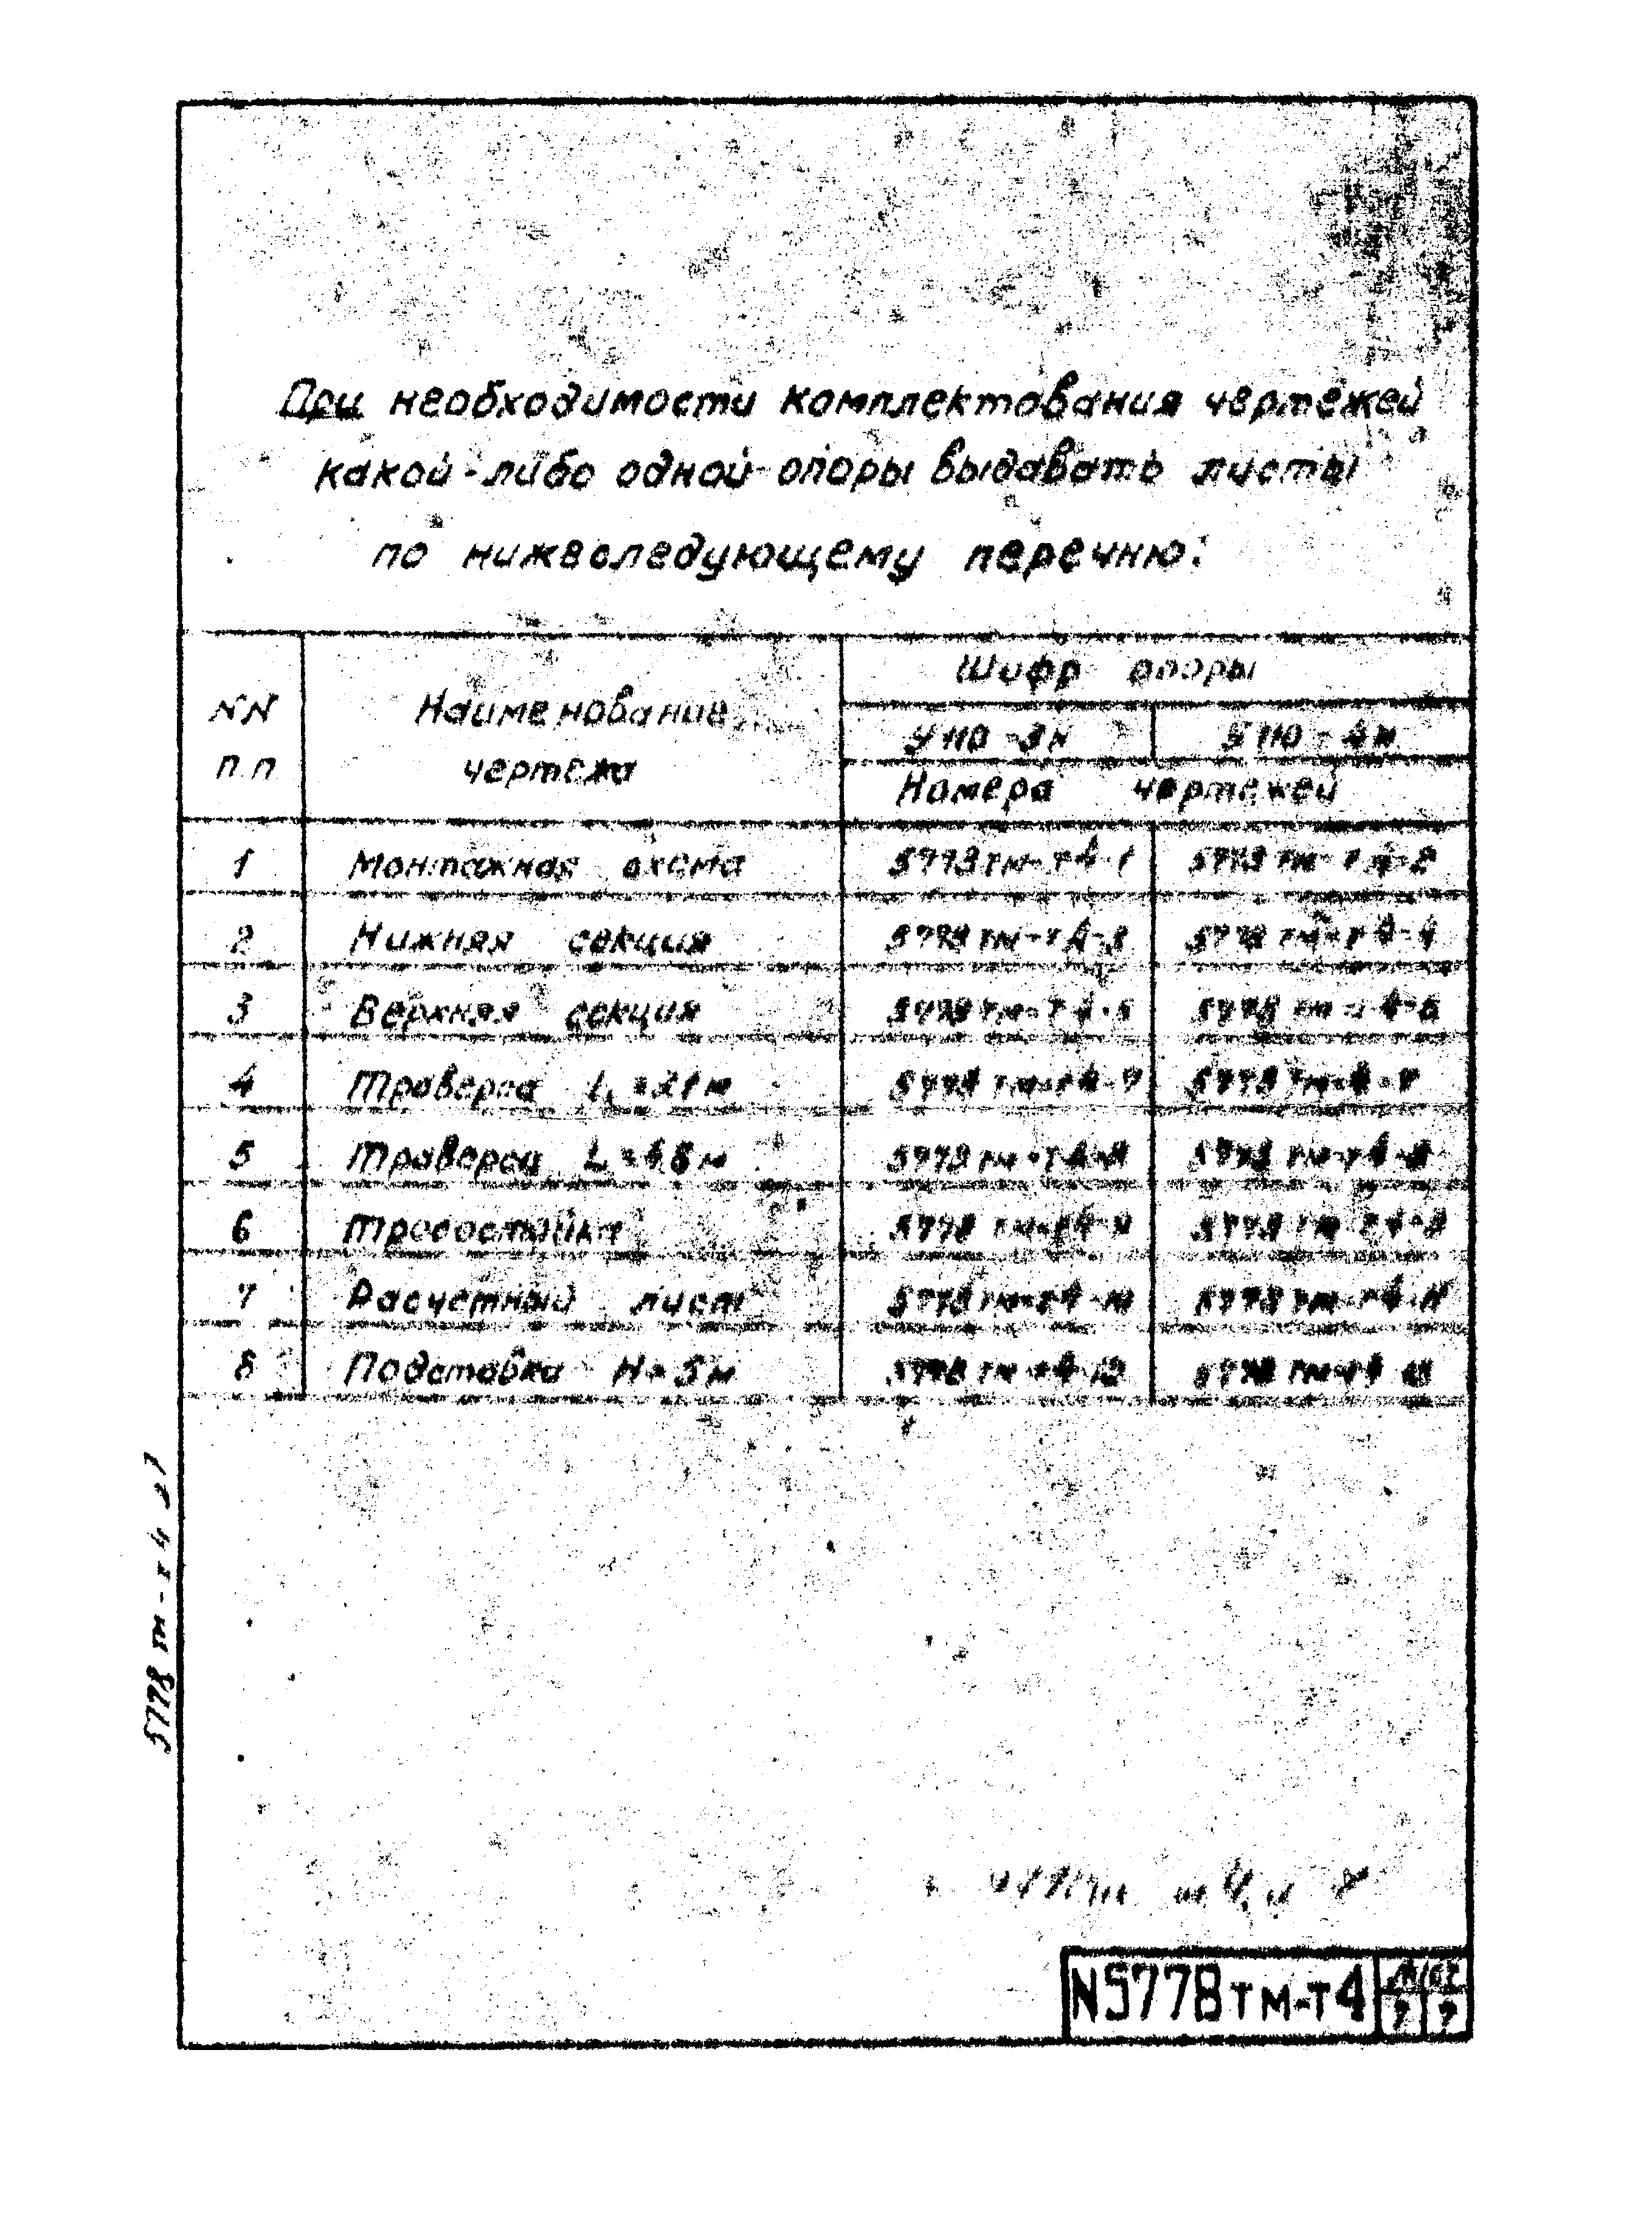 При необходимости комплектования чертежей
какой-либо одной опоры выдавать листы
по нижеследующему перечню:
NN п.п Наименование чертежа Шифр опоры
У110-3н У110-4н
Номера чертежей
1 Монтажная схема 5778тм-т4-1 5778тм-т4-2
2 Нижняя секция 5778тм-т4-3 5778тм-т4-4
3 Верхняя секция 5778тм-т4-5 5778тм-т4-6
4 Траверса 5778тм-т4-7 5778тм-т4-7
5 Траверса 5778тм-т4-8 5778тм-т4-8
6 Тросостойка 5778тм-т4-9 5778тм-т4-9
7 Расчетный лист 5778тм-т4-10 5778тм-т4-11
8 Подставка Н=5м
5778тм-т4
N5778тм-т4